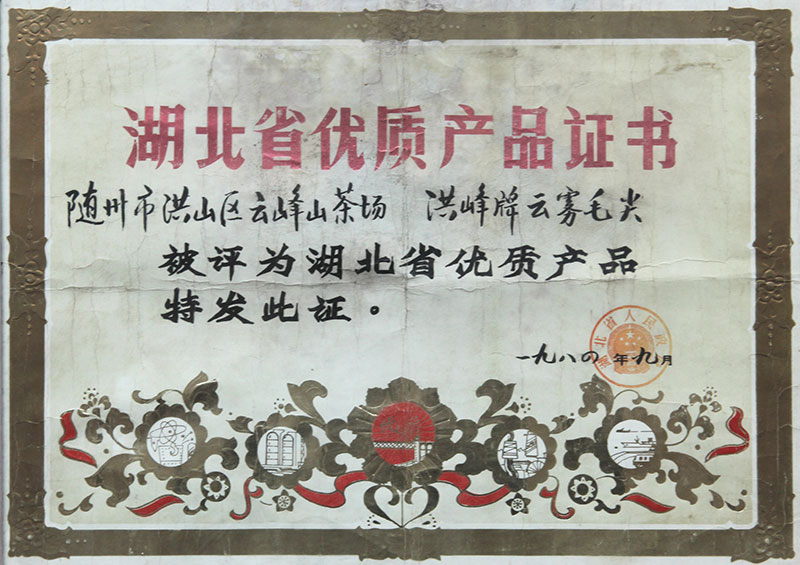 湖北省优质产品证书
随州市洪山区云峰山茶场 洪峰牌云雾毛尖
被评为湖北省优质产品
特发此证。
湖北省人民政府
一九八四年九月